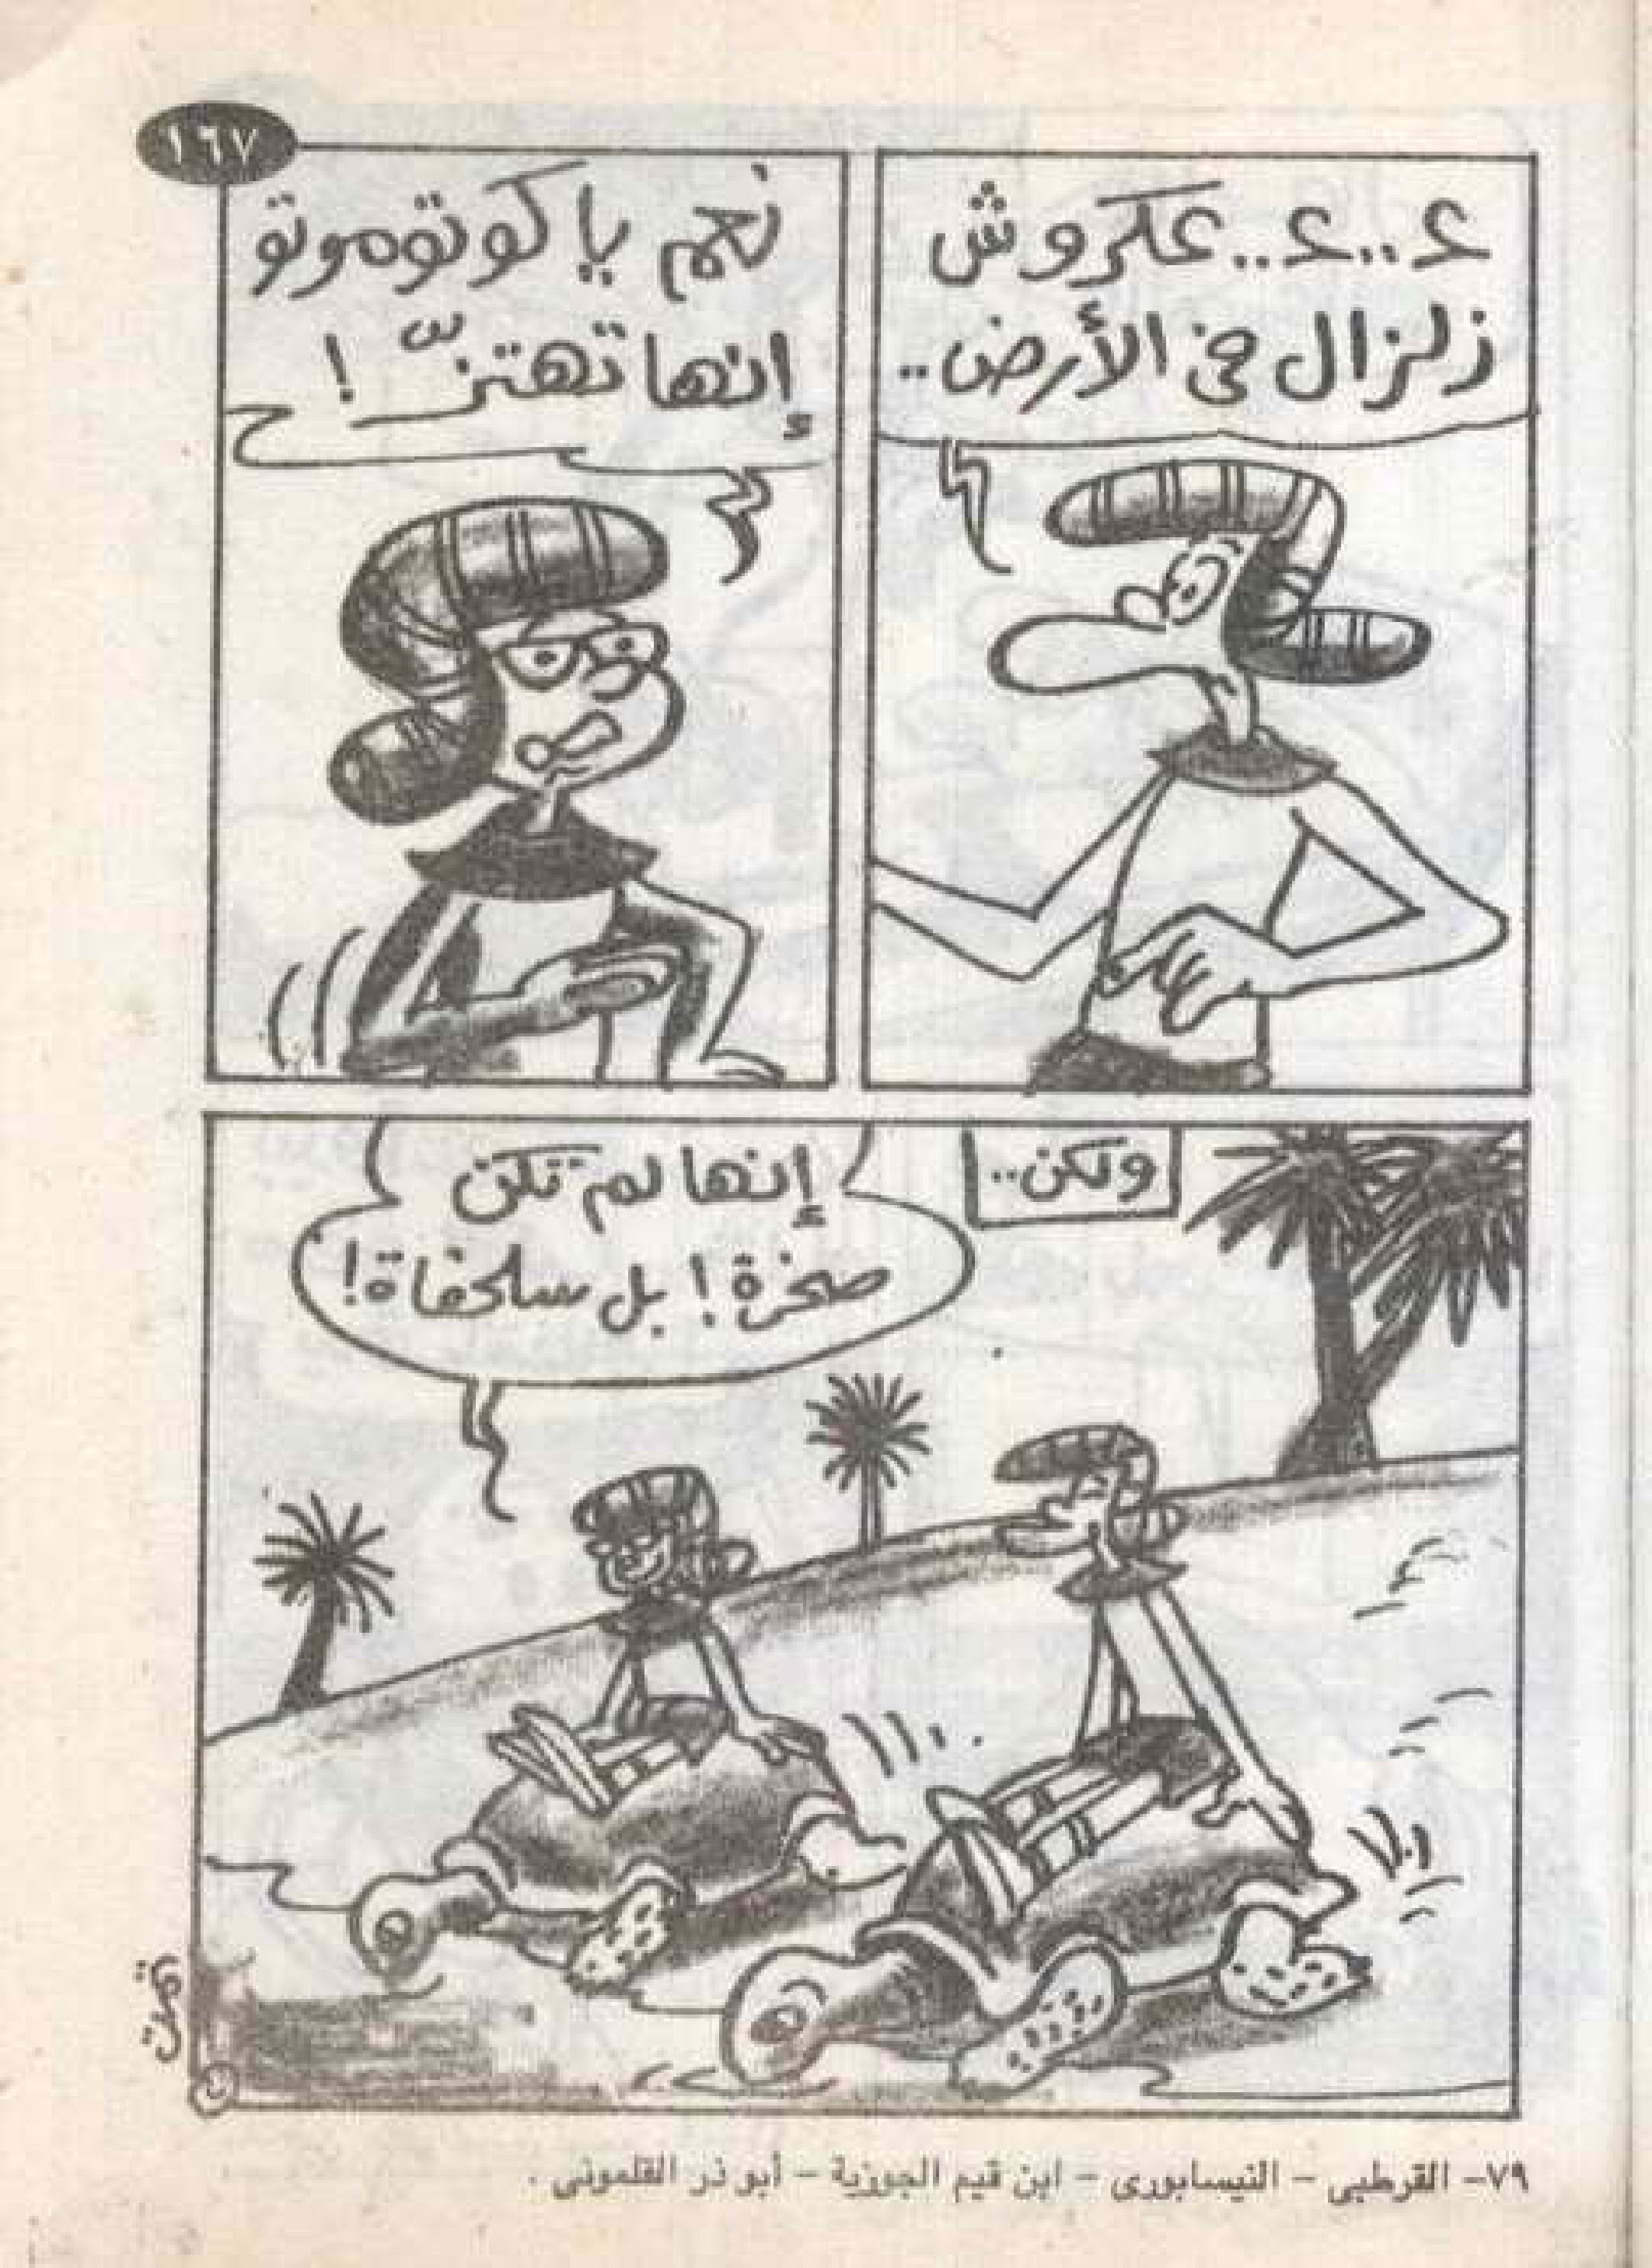 ١٦٧
ع..ع..عكروش
زلزال فى الأرض..
نعم يا كوتوموتو
إنها تهتزّ !
ولكن..
إنها لم تكن
صخرة ! بل سلحفاة !
تمت
٧٩- القرطبى - النيسابورى - ابن قيم الجوزية - أبو ذر القلمونى .